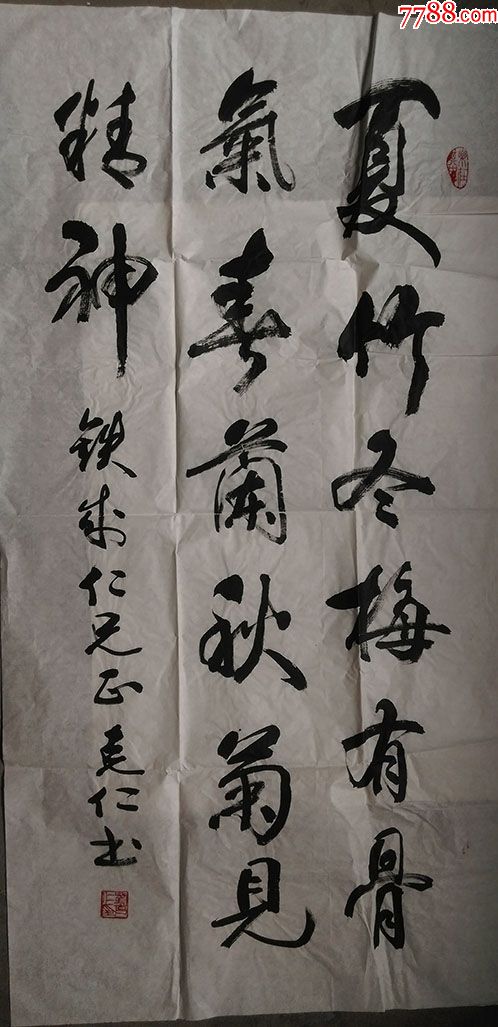 7788.com
夏竹冬梅有骨
氣春蘭秋菊見
精神
鐵成仁兄正 克仁书